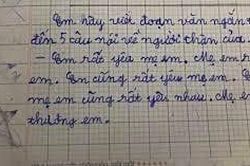 Em hãy viết đoạn văn ngắn
đến 5 câu nói về người thân của
- Em rất yêu mẹ em. Mẹ em r
em. Em cũng rất yêu mẹ em.
mẹ em cũng rất yêu nhau. Mẹ e
thương em.